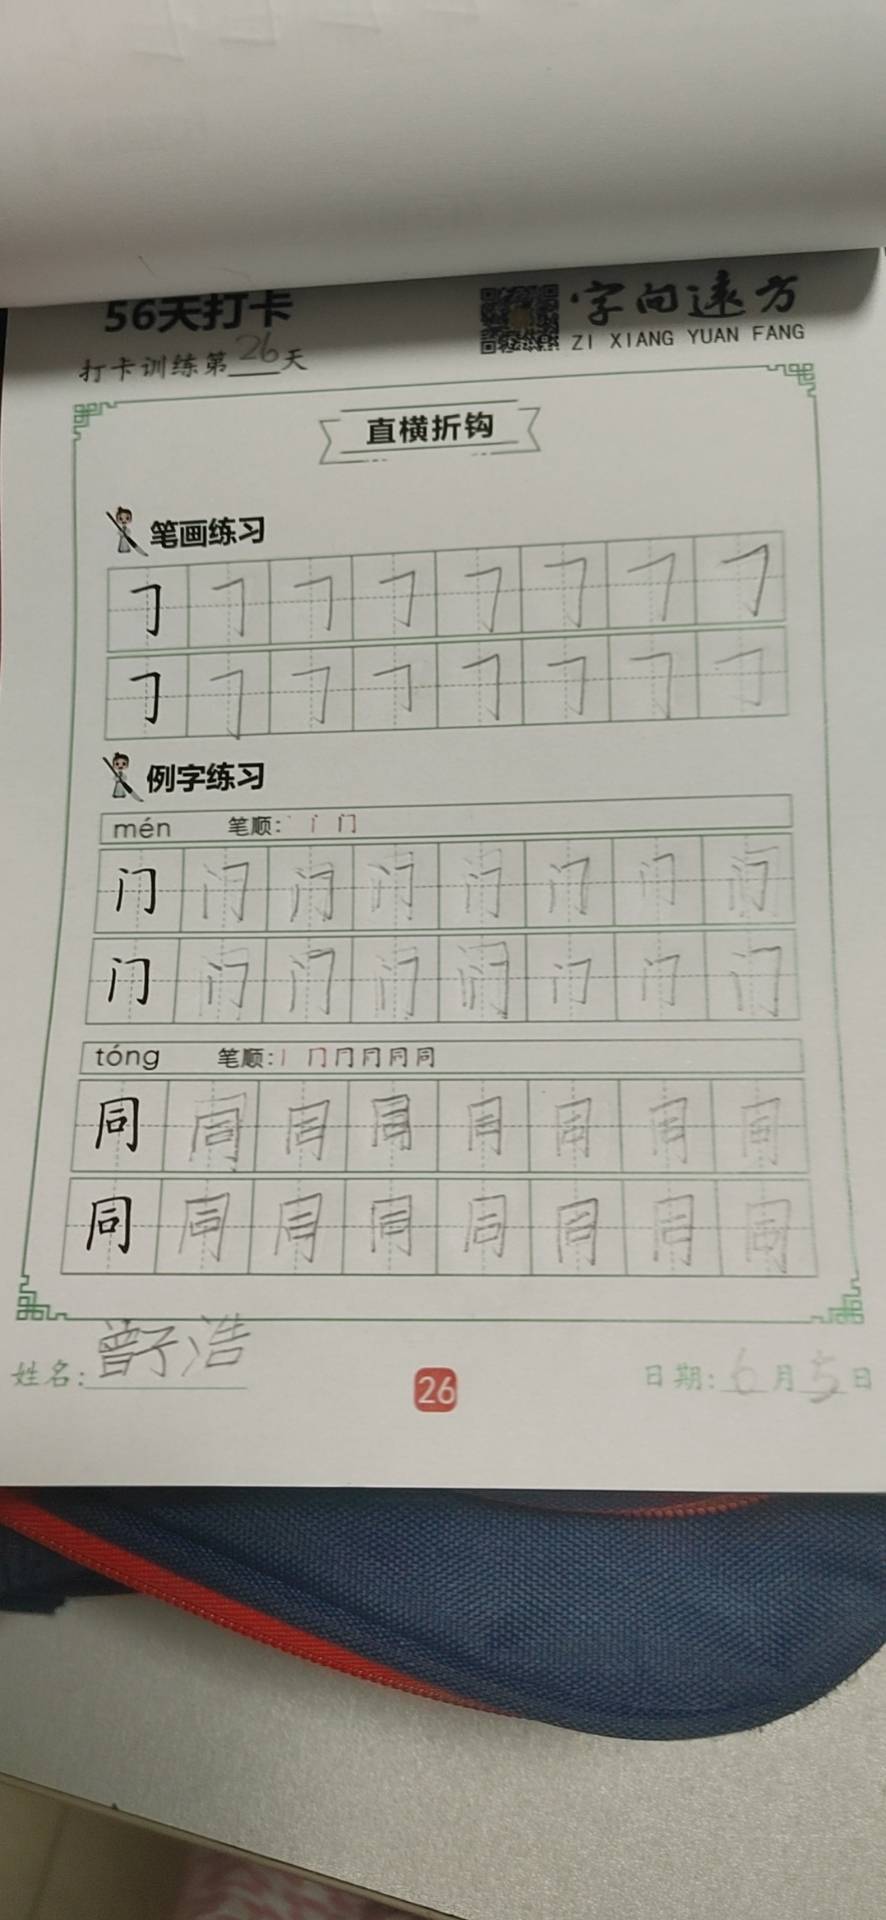 56天打卡
字向远方
打卡训练第26天
ZI XIANG YUAN FANG
直横折钩
笔画练习
㇆ ㇆ ㇆ ㇆ ㇆ ㇆ ㇆ ㇆
㇆ ㇆ ㇆ ㇆ ㇆ ㇆ ㇆ ㇆
例字练习
mén 笔顺: 丶 门
门 门 门 门 门 门 门 门
门 门 门 门 门 门 门 门
tóng 笔顺: 丨 冂 同
同 同 同 同 同 同 同 同
同 同 同 同 同 同 同 同
姓名: 曾子浩
26
日期: 6月5日